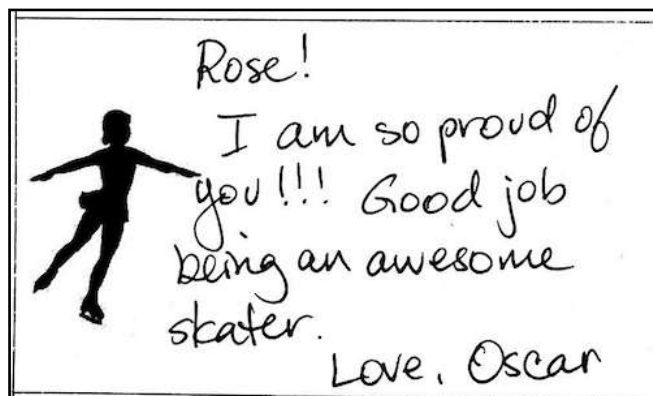 Rose!
I am so proud of
you!!! Good job
being an awesome
skater.
Love, Oscar